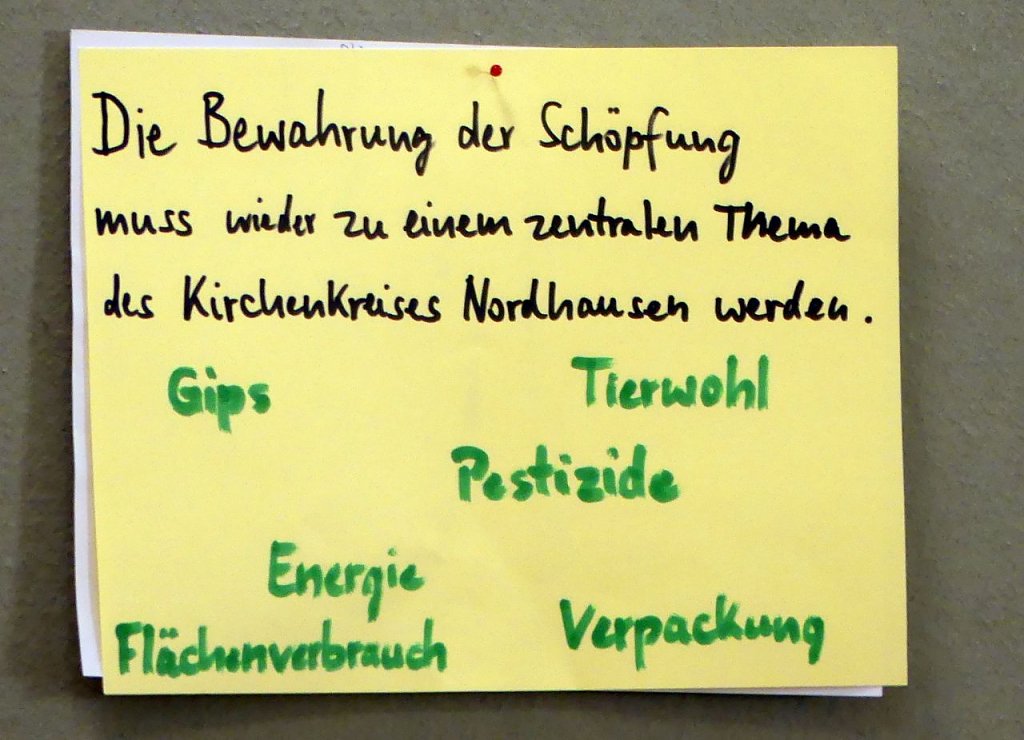 Die Bewahrung der Schöpfung
muss wieder zu einem zentralen Thema
des Kirchenkreises Nordhausen werden.
Gips
Tierwohl
Pestizide
Energie
Verpackung
Flächenverbrauch